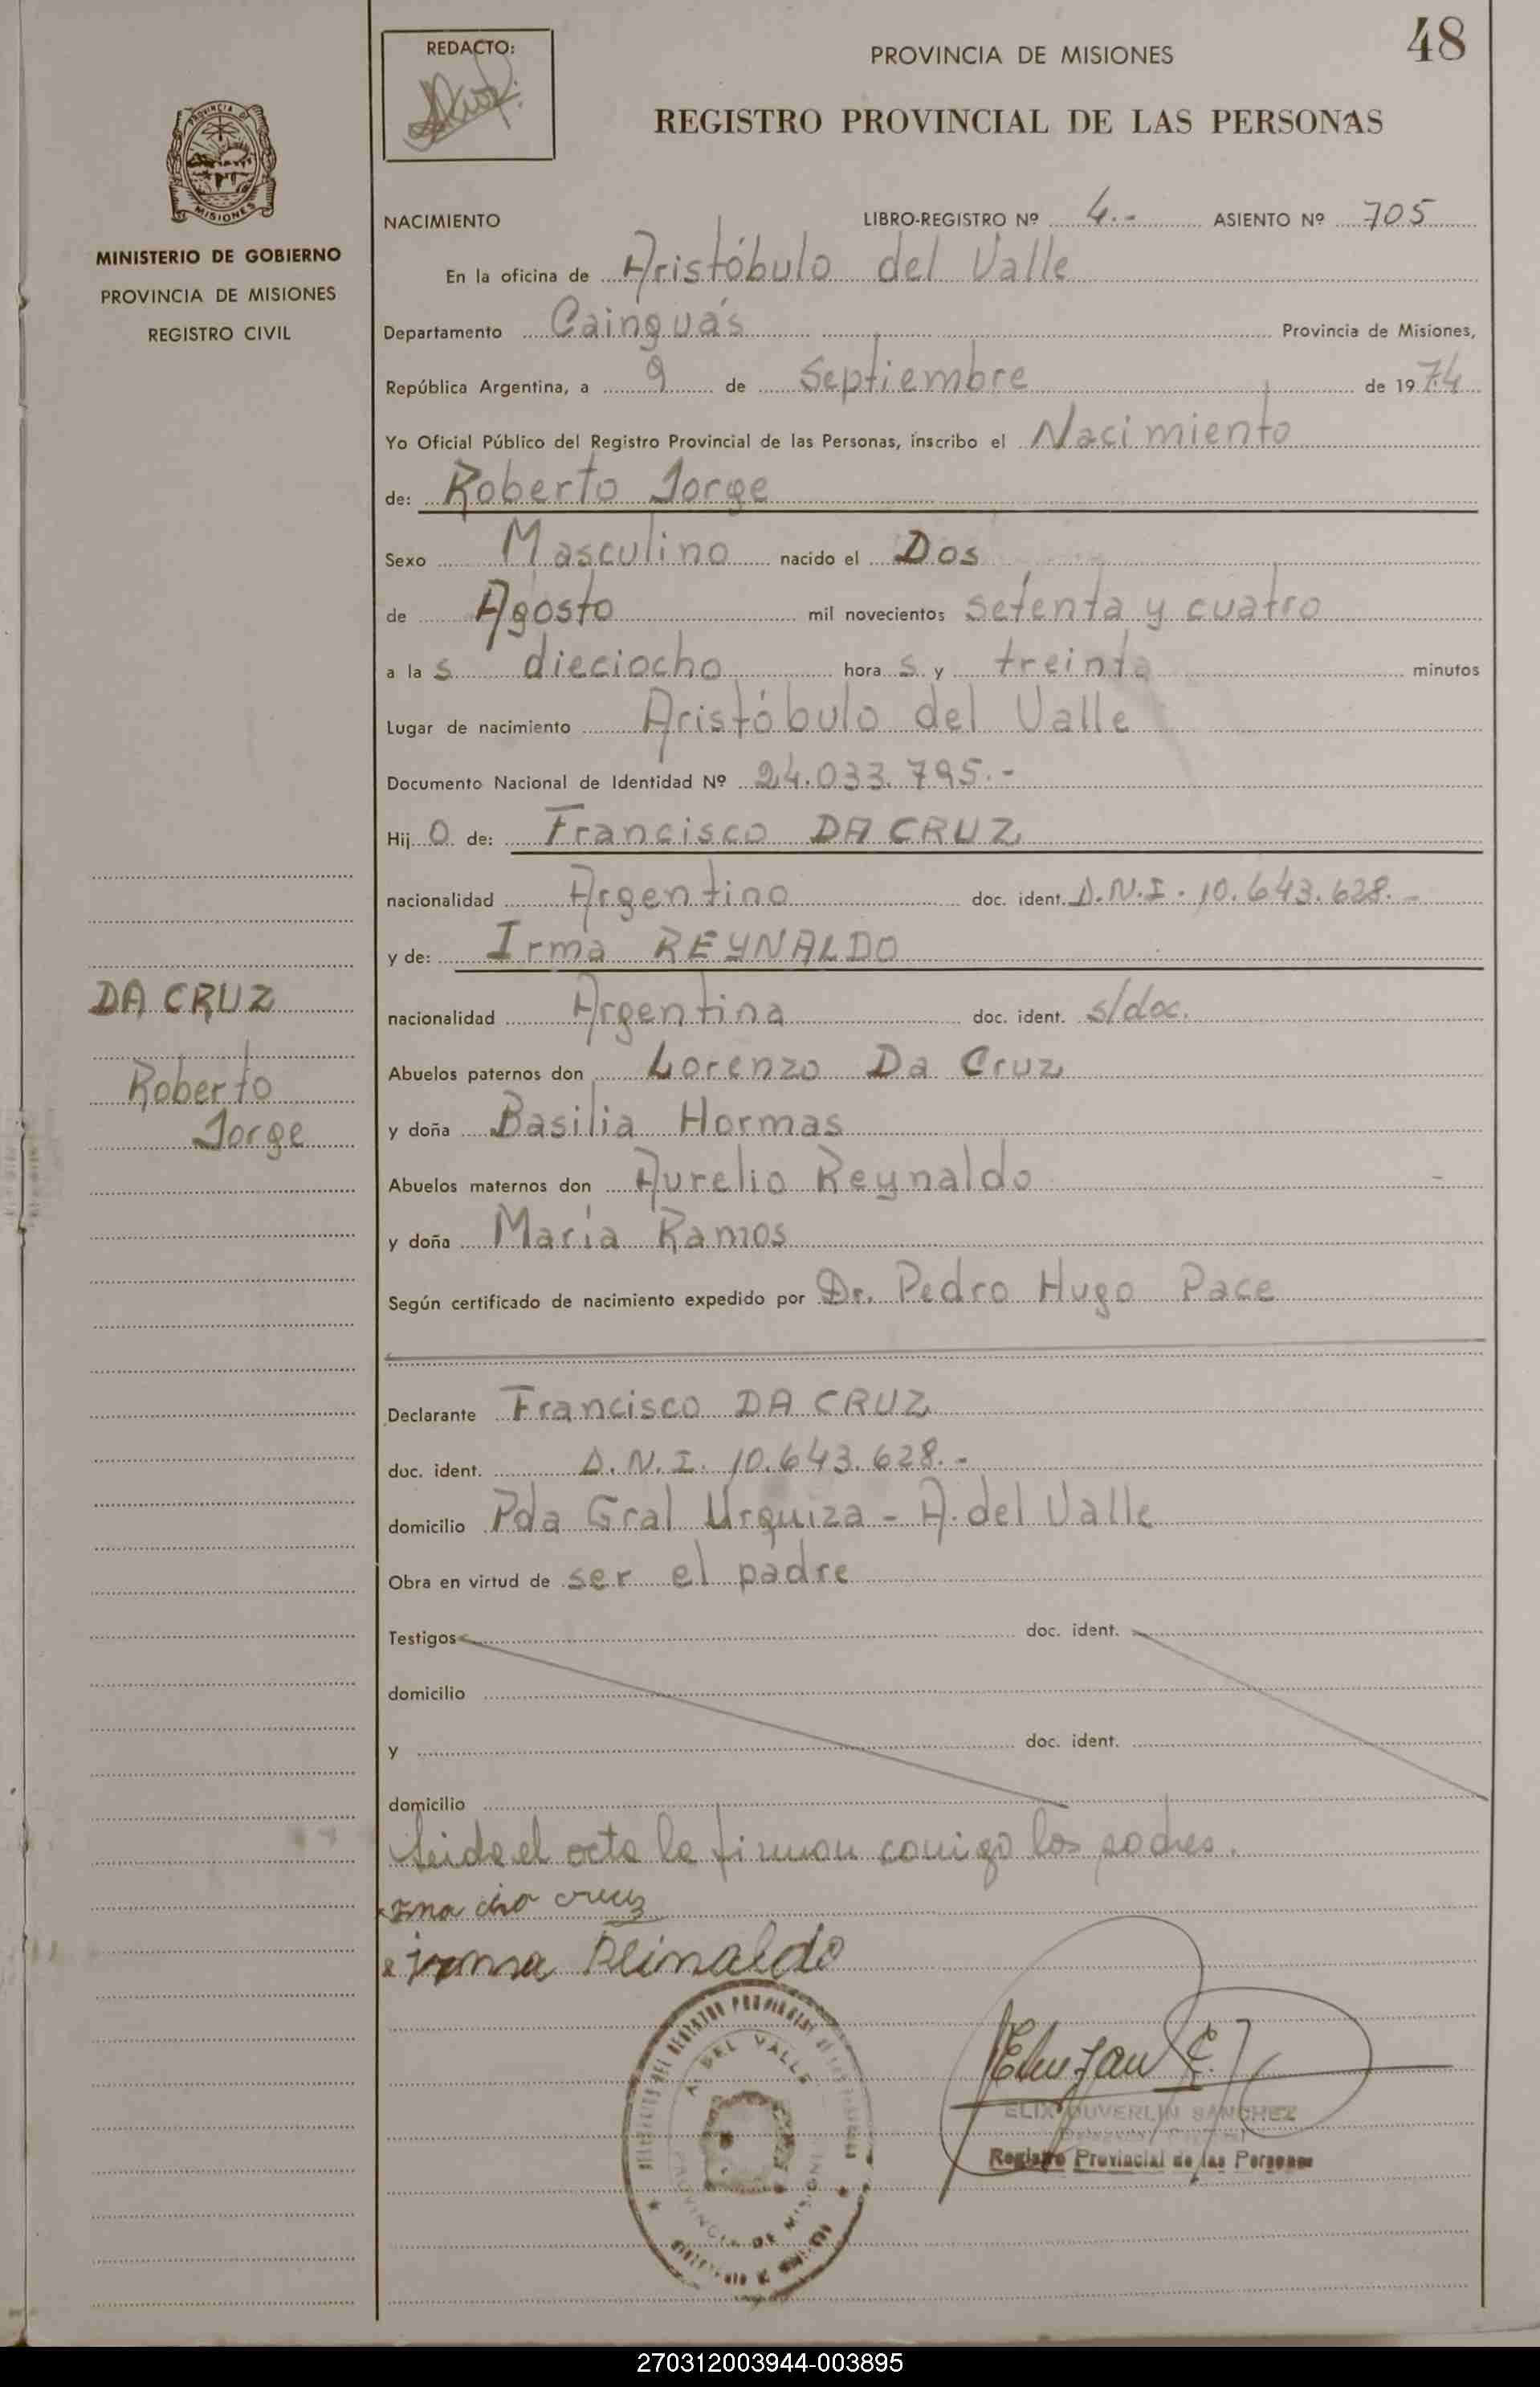 48
REDACTO:
PROVINCIA DE MISIONES
REGISTRO PROVINCIAL DE LAS PERSONAS
PROVINCIA DE
MISIONES
MINISTERIO DE GOBIERNO
PROVINCIA DE MISIONES
REGISTRO CIVIL
NACIMIENTO LIBRO-REGISTRO Nº 4.- ASIENTO Nº 705
En la oficina de Aristóbulo del Valle
Departamento Cainguás Provincia de Misiones,
República Argentina, a 9 de Septiembre de 1974
Yo Oficial Público del Registro Provincial de las Personas, inscribo el Nacimiento
de: Roberto Jorge
Sexo Masculino nacido el Dos
de Agosto mil novecientos setenta y cuatro
a la s dieciocho hora s y treinta minutos
Lugar de nacimiento Aristóbulo del Valle
Documento Nacional de Identidad Nº 24.033.795.-
Hij o de: Francisco DA CRUZ
nacionalidad Argentino doc. ident. D.N.I. 10.643.628.-
y de: Irma REYNALDO
nacionalidad Argentina doc. ident. s/doc.
Abuelos paternos don Lorenzo Da Cruz
y doña Basilia Hormas
Abuelos maternos don Aurelio Reynaldo
y doña María Ramos
Según certificado de nacimiento expedido por Dr. Pedro Hugo Pace
DA CRUZ
Roberto
Jorge
Declarante Francisco DA CRUZ
doc. ident. D.N.I. 10.643.628.-
domicilio Pda Gral Urquiza - A. del Valle
Obra en virtud de ser el padre
Testigos doc. ident.
domicilio
y doc. ident.
domicilio
Leida el acta la firman comigo los padres.
cruz
irma Reinaldo
A. DEL VALLE
PROVINCIA DE MISIONES
SANCHEZ
Registro Provincial de las Personas
270312003944-003895